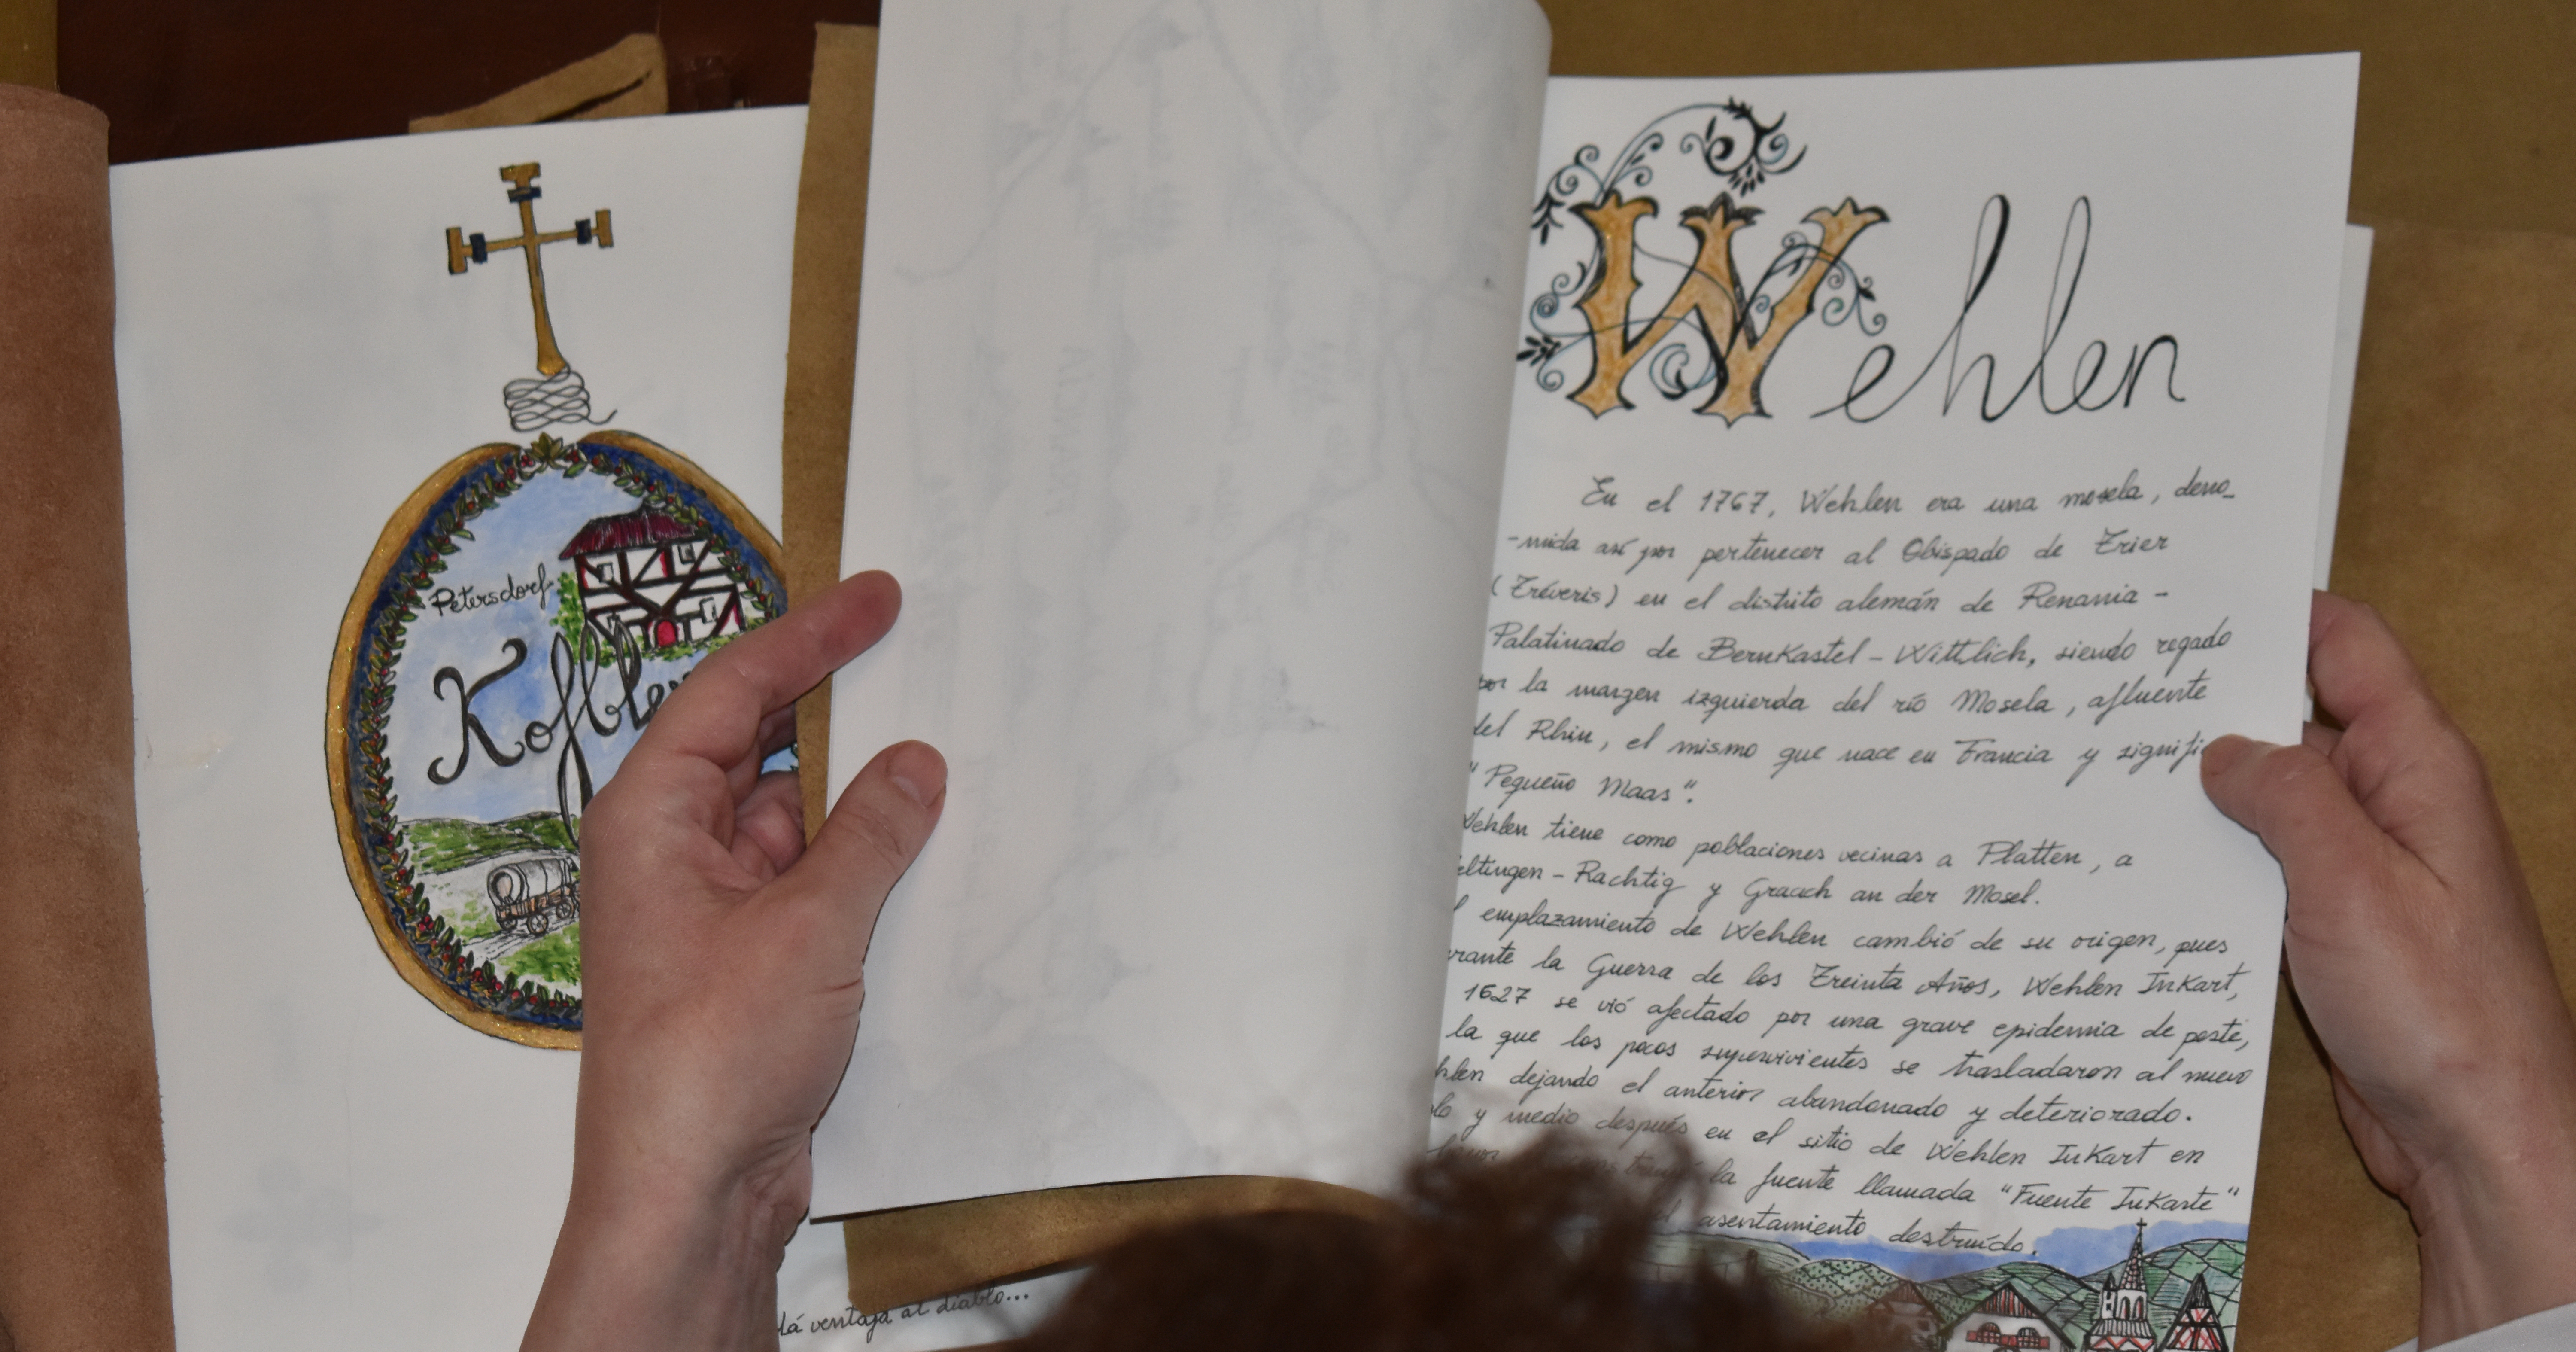 Petersdorf
Wehlen
En el 1767, Wehlen era una mosela, deno_
-mida así por pertenecer al Obispado de Trier
(Tréveris) en el distrito alemán de Renania -
Palatinado de Bernkastel - Wittlich, siendo regado
por la margen izquierda del río Mosela, afluente
del Rhin, el mismo que nace en Francia y signifi
"Pequeño Maas".
Wehlen tiene como poblaciones vecinas a Platten, a
eltingen - Rachtig y Graach an der Mosel.
l emplazamiento de Wehlen cambió de su origen, pues
urante la Guerra de los Treinta Años, Wehlen InKart,
1627 se vió afectado por una grave epidemia de peste,
la que los pocos supervivientes se trasladaron al nuevo
hlen dejando el anterior abandonado y deteriorado.
lo y medio después en el sitio de Wehlen InKart en
la fuente llamada "Fuente InKarte"
el asentamiento destruído.
dá ventaja al diablo...